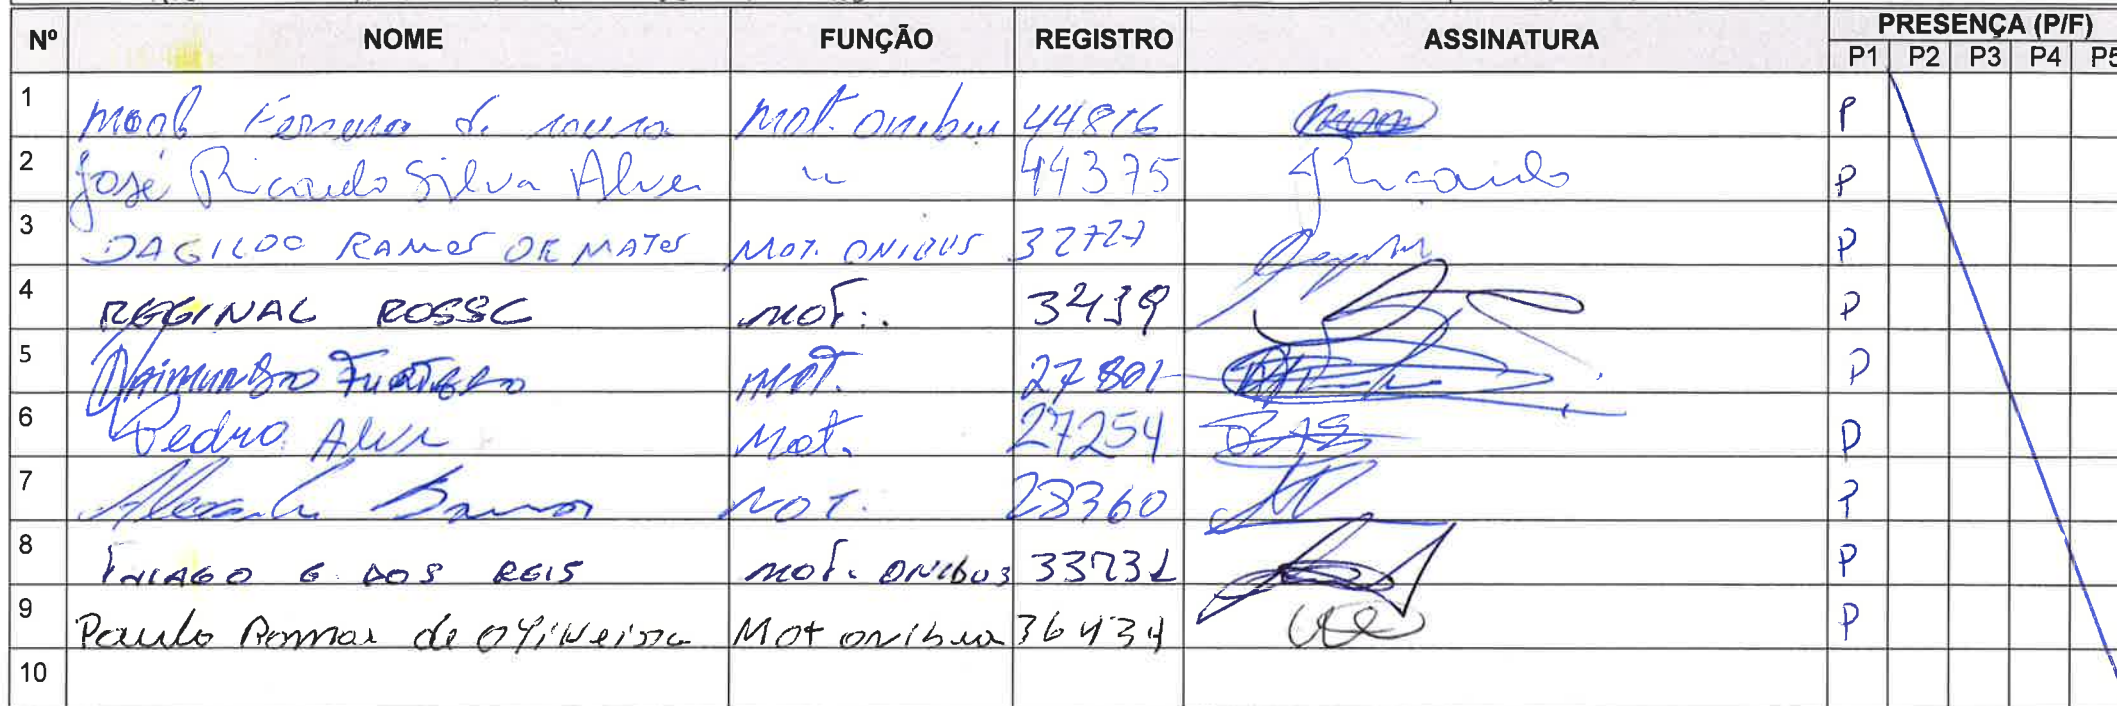 Nº NOME FUNÇÃO REGISTRO ASSINATURA PRESENÇA (P/F)
P1 P2 P3 P4 P5
1 Ferreira de souza Mot. onibus 44816 P
2 José Ricardo Silva Alves " 44375 JRicardo P
3 DAGILDO RAMOS DE MATOS MOT. ONIBUS 32727 P
4 REGINAL ROSSC MOT.. 3439 P
5 Raimundo Furtado MOT. 27801 P
6 Pedro Alve Mot. 27254 P
7 Alexandre Barros MOT. 28360 P
8 THIAGO G. DOS REIS MOT. ONIBUS 33731 P
9 Paulo Romar de Oliveira Mot onibus 36434 P
10